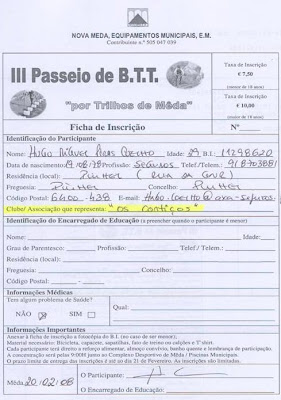 NOVA MEDA, EQUIPAMENTOS MUNICIPAIS, E.M.
Contribuinte n.º 505 047 039
III Passeio de B.T.T.
"por Trilhos de Mêda"
Taxa de Inscrição
€ 7,50
(menor de 18 anos)
Taxa de Inscrição
€ 10,00
(maior de 18 anos)
Ficha de Inscrição Nº
Identificação do Participante
Nome: HUGO MIGUEL COELHO Idade: 29 B.I.: 11298620
Data de nascimento: Profissão: SEGUROS Telef./Telem.:
Residência (local): PINHEL
Freguesia: PINHEL Concelho: PINHEL
Código Postal: 6400-438 E-mail: HUGO.COELHO@
Clube/ Associação que representa: "OS"
Identificação do Encarregado de Educação (a preencher quando o participante é menor)
Nome: Idade:
Grau de Parentesco: Profissão: Telef./ Telem.:
Residência (local):
Freguesia: Concelho:
Código Postal: -
Informações Médicas
Tem algum problema de Saúde?
NÃO SIM Qual:
Informações Importantes
Anexar à ficha de inscrição a fotocópia do B.I. (no caso de ser menor);
Material necessário: Bicicleta, capacete, sapatilhas, fato de treino ou calções e T'shirt.
Cada participante terá direito a reforço alimentar, almoço convívio, banho quente e lembrança de participação.
A concentração será pelas 9:00H junto ao Complexo Desportivo de Mêda / Piscinas Municipais.
O prazo limite de entrega das inscrições é até ao dia 21 de Fevereiro. As inscrições são limitadas.
Mêda, 20/02/08 O Participante:
O Encarregado de Educação: